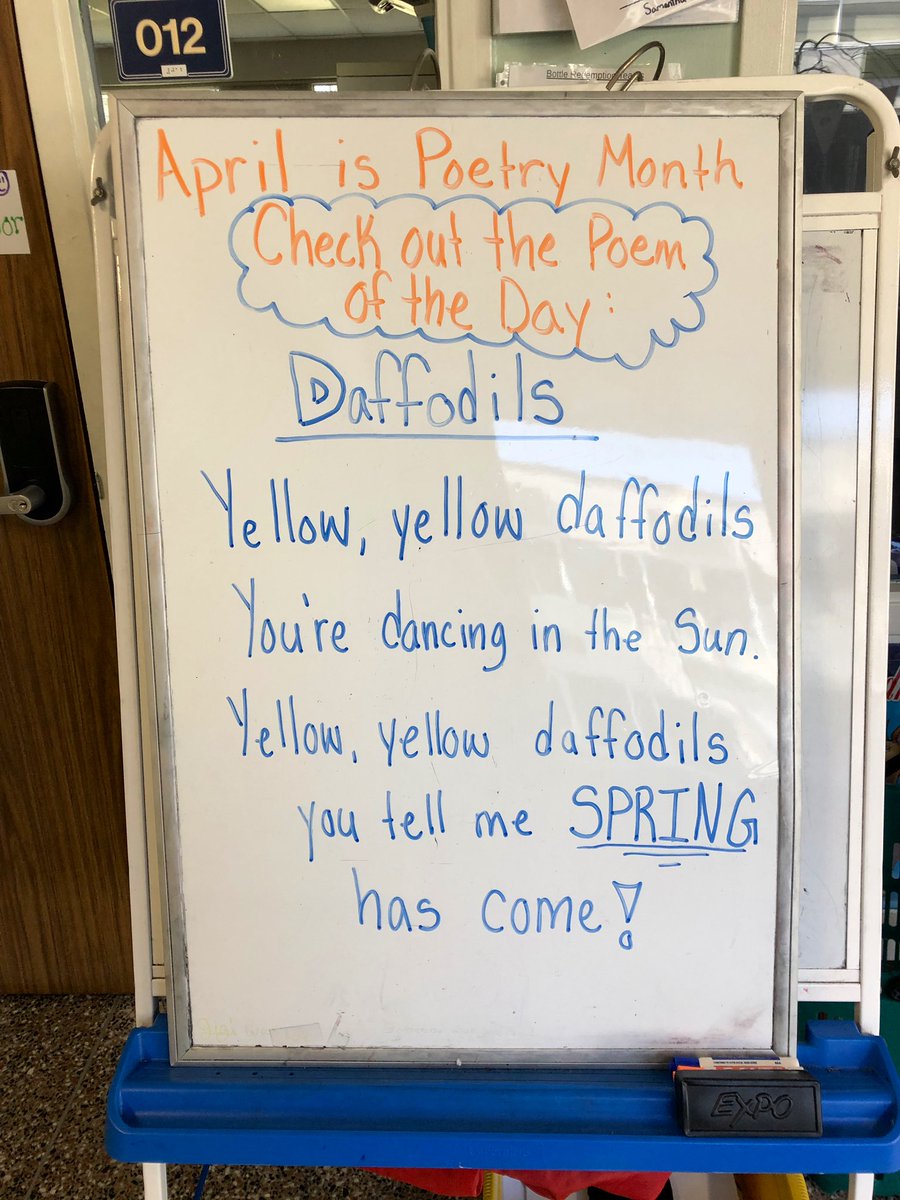 012
Samantha
April is Poetry Month
Check out the Poem
of the Day:
Daffodils
Yellow, yellow daffodils
You're dancing in the Sun.
Yellow, yellow daffodils
you tell me SPRING
has come!
EXPO